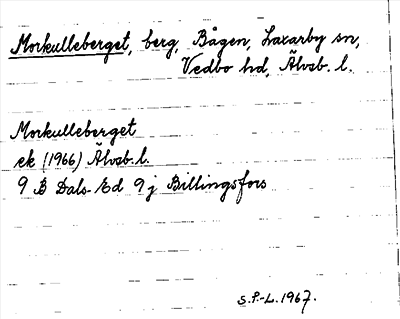 Morkulleberget, berg, Bågen, Laxarby sn,
Vedbo hd, Älvsb. l.
Morkulleberget
ek (1966) Älvsb. l.
9 B Dals-Ed 9 j Billingsfors
S.F.-L. 1967.